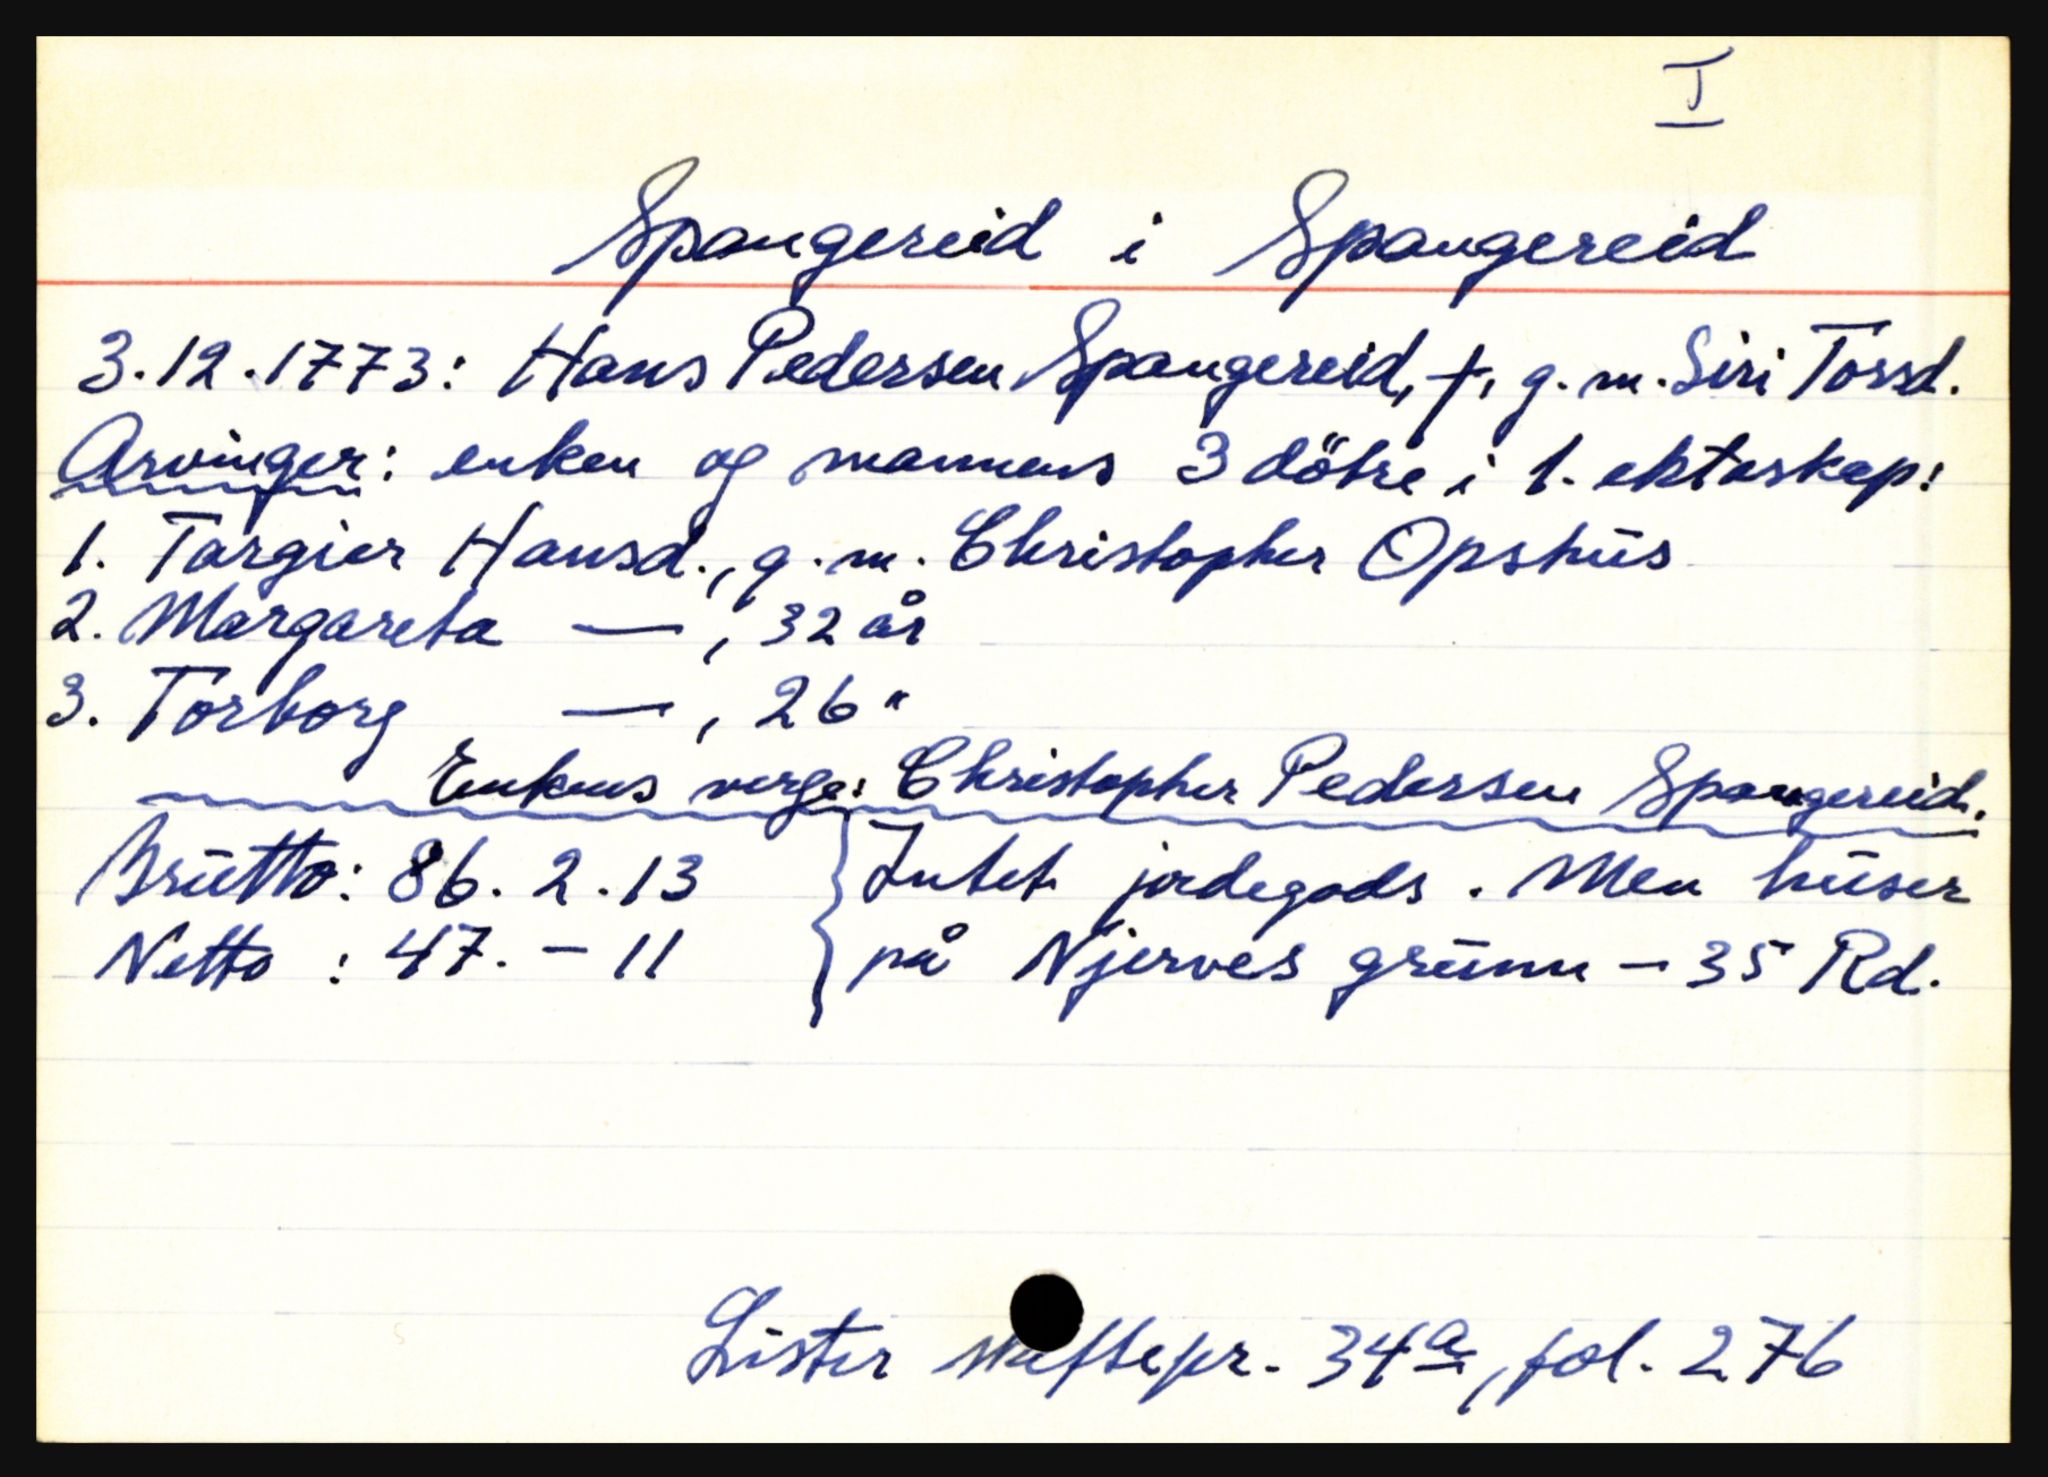 I
Spangereid i Spangereid
3.12.1773: Hans Pedersen Spangereid, †, g. m. Siri Torsd.
Arvinger: enken og mannens 3 dötre i 1. ektaskap:
1. Targier Hansd., g. m. Christopher Opshus
2. Margareta — , 32 år
3. Torborg — , 26 "
Enkens verge: Christopher Pedersen Spangereid.
Brutto: 86. 2. 13 } Intet jordegods. Men huser
Netto : 47. – 11 på Njerves grunn – 35 Rd.
Lister skiftepr. 34a, fol. 276